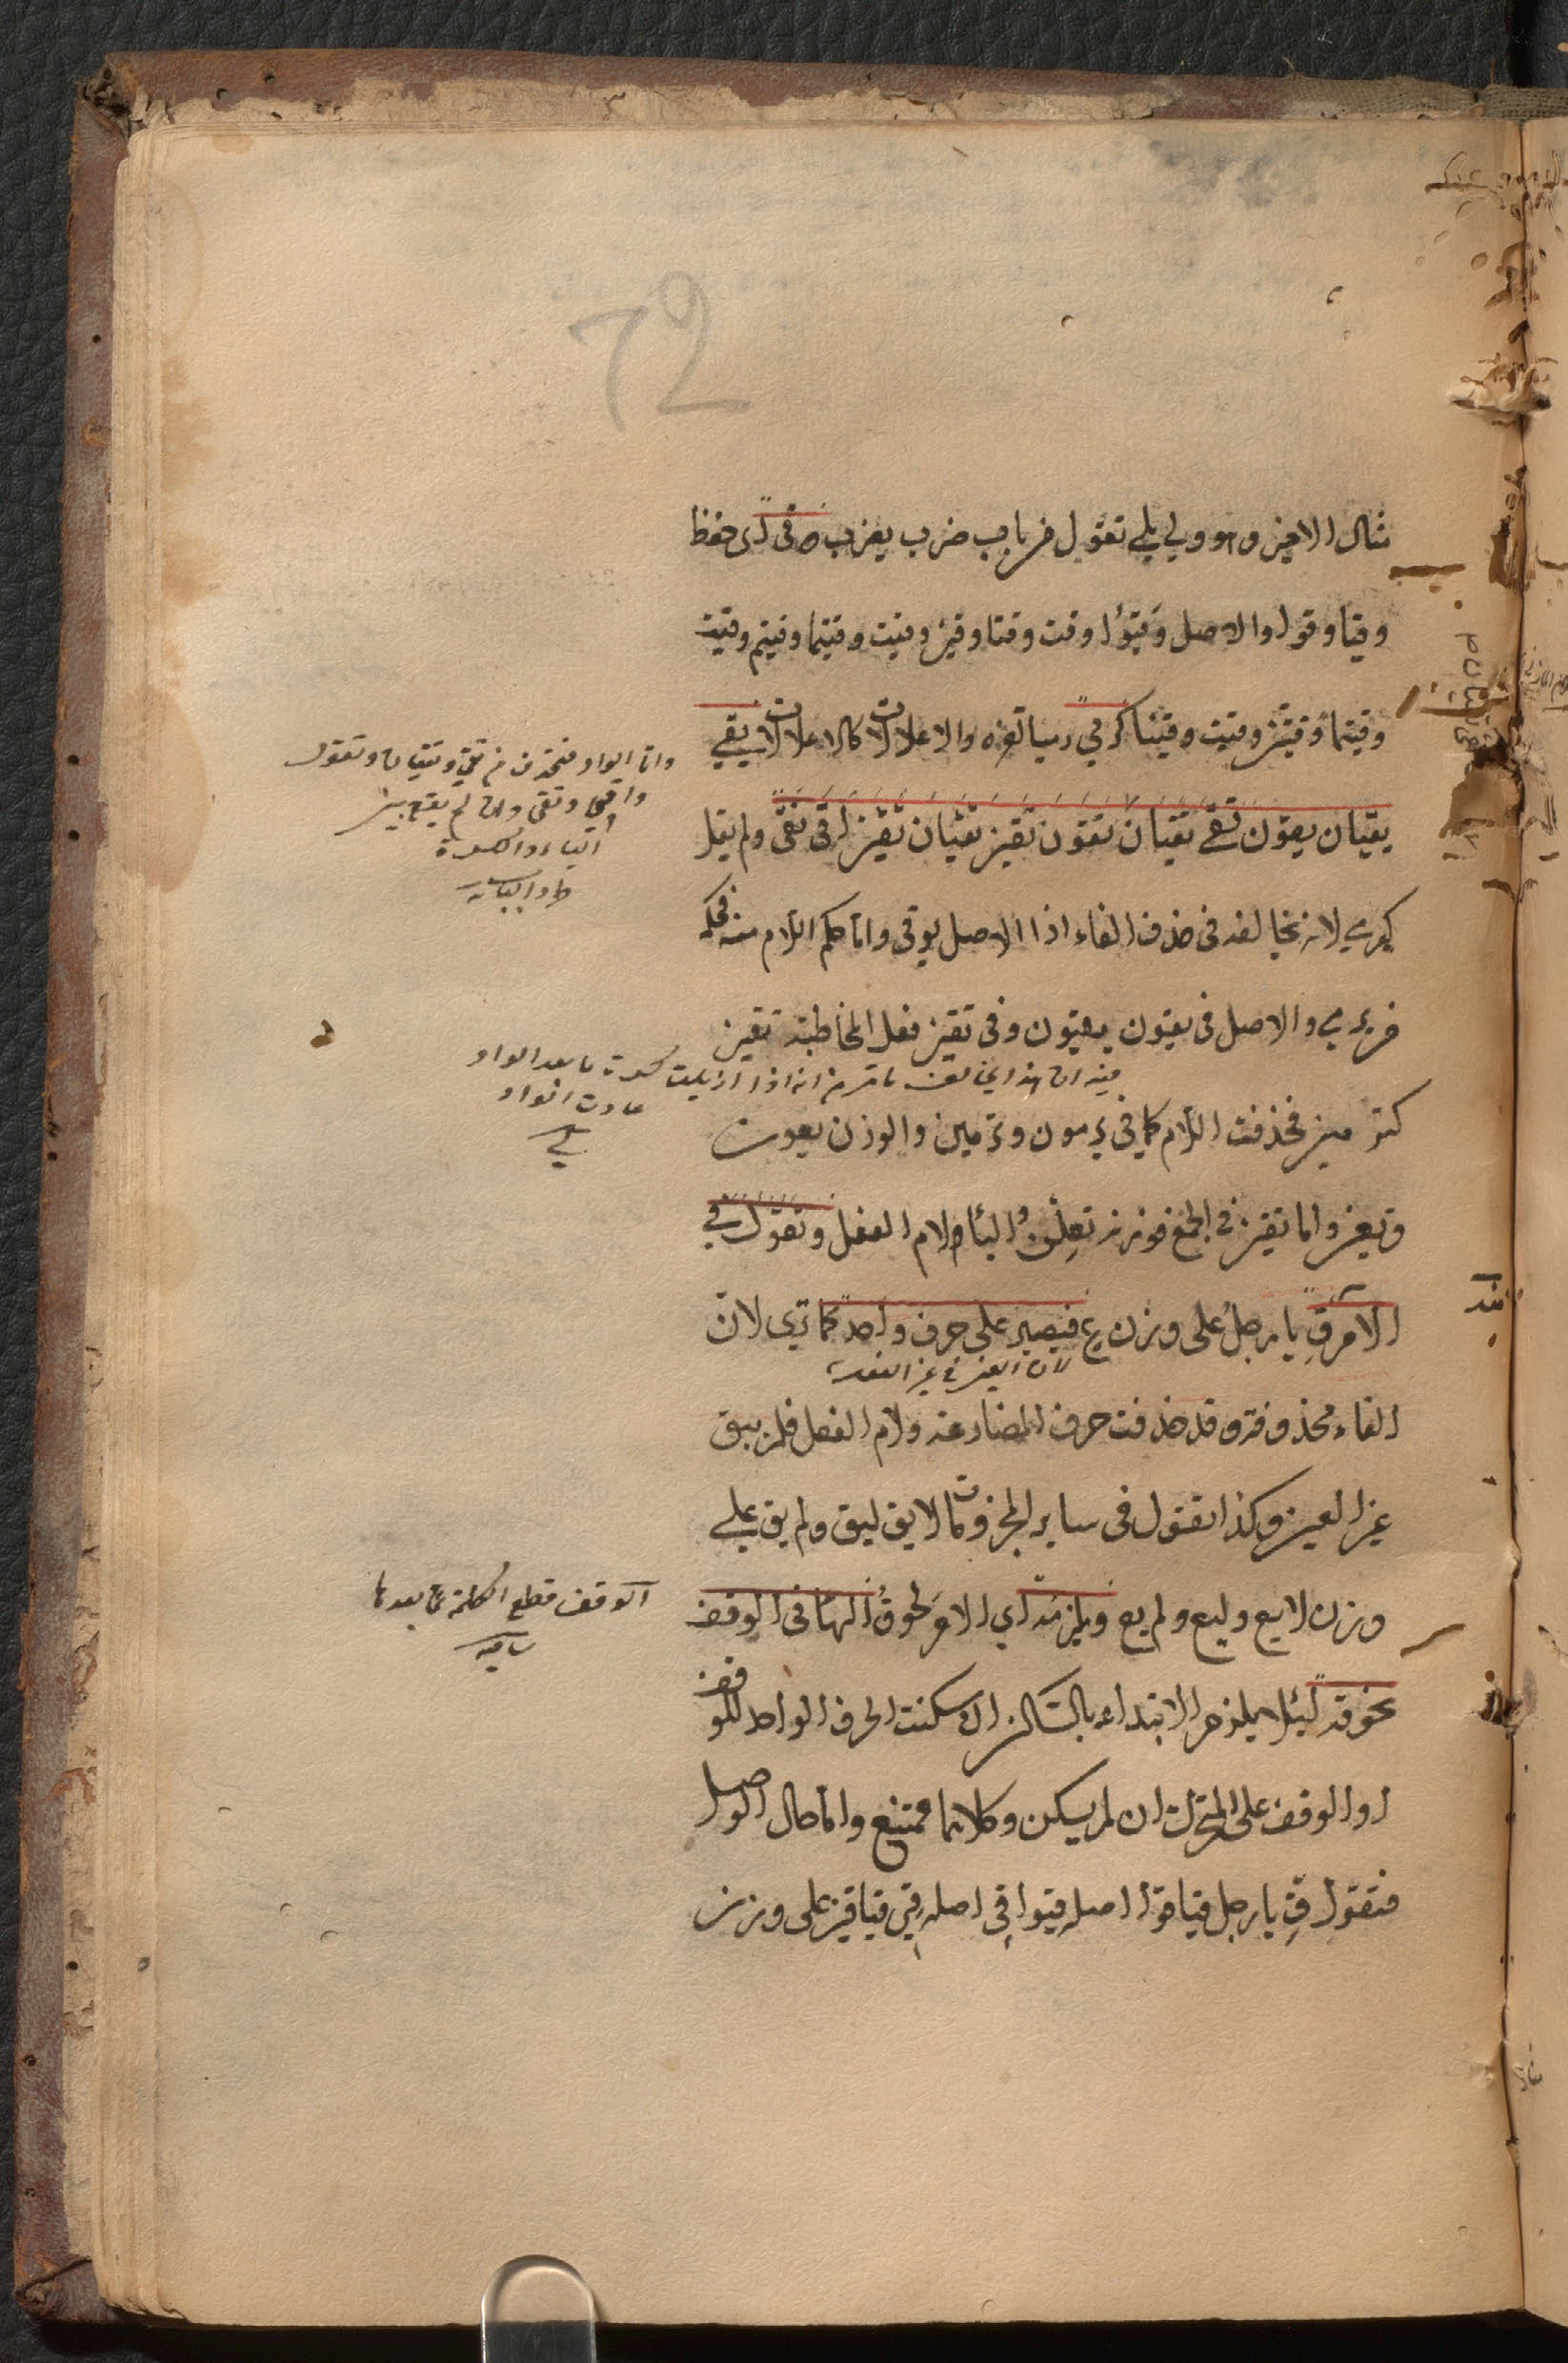 72
مثال الاخير وهو ولي يلي تقول من باب ضرب يضرب وقى كرمى حفظ
وقيا وقوا والاصل وقيوا وقت وقتا وقين وقيت وقيتما وقيتم وقيت
وقيتما وقيتن وقيت وقينا كرمى رميا والاعلالات كالاعلالات يقي
يقيان يقون تقي تقيان يقين تقي تقيان تقون تقين تقيان تقين اقي نقي ولم يقل
كيرمي لانه يخالفه في حذف الفاء اذ الاصل يوقي واما حكم اللام منه فحكمه
من يرمي والاصل في يقون يقيون وفي تقين فعل المخاطبة تقيين
كترميين فحذفت اللام كما في يرمون وترمين والوزن يعون
وتعين واما تقين في الجمع فوزنه تعلن والياء لام الفعل وتقول في
الامر قِ يا رجل على وزن عِ فيصير على حرف واحد كما ترى لان
الفاء محذوفة وقد حذفت حرف المضارعة ولام الفعل فلم يبق
غير العين وكذا تقول في ساير المجزومات لا يق ليق ولم يق على
وزن لا يع وليع ولم يع ويلزمه اي الامر لحوق الهاء في الوقف
نحو قه لئلا يلزم الابتداء بالساكن ان سكنت الحرف الواحد للوقف
او الوقف على المتحرك ان لم يسكن وكلاهما ممتنع واما حال الوصل
فتقول قِ يا رجل قيا قوا اصله قيوا قي اصله قيي قيا قين على وزن
واما الواو فتحذف من تقي وتقيان وتقول
واقي ونقي وان لم يقع بين
الياء والكسرة
طردا للباب
فيه ان هذا يخالف ما مر من انه اذا ازيلت كسرة ما بعد الواو
عادت الواو
لان العين في عين الفعل
الوقف قطع الكلمة عما بعدها
شافيه